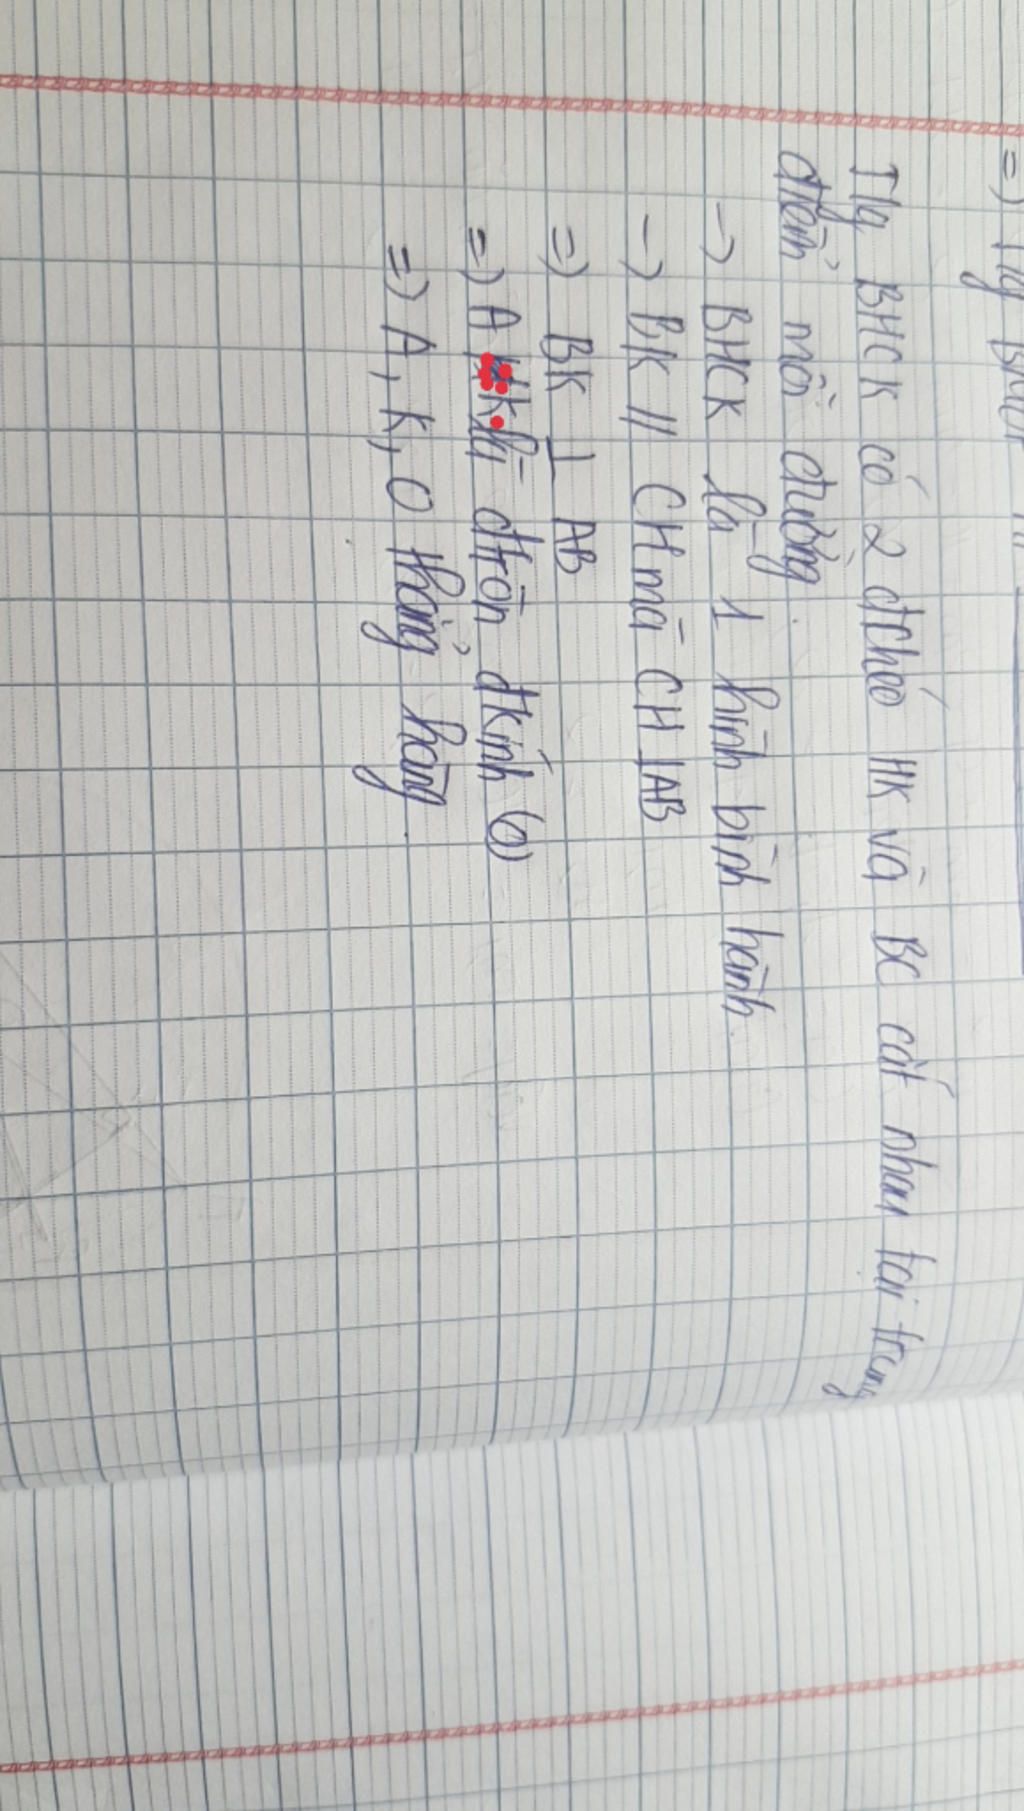 =) Tứg
Tứg BHCK có 2 đchéo HK và BC cắt nhau tại trung
điểm mỗi đường.
-> BHCK là 1 hình bình hành.
-> BK // CH mà CH ⊥ AB
=) BK ⊥ AB
=) A K là đtròn đkính (O)
=) A, K, O thẳng hàng.